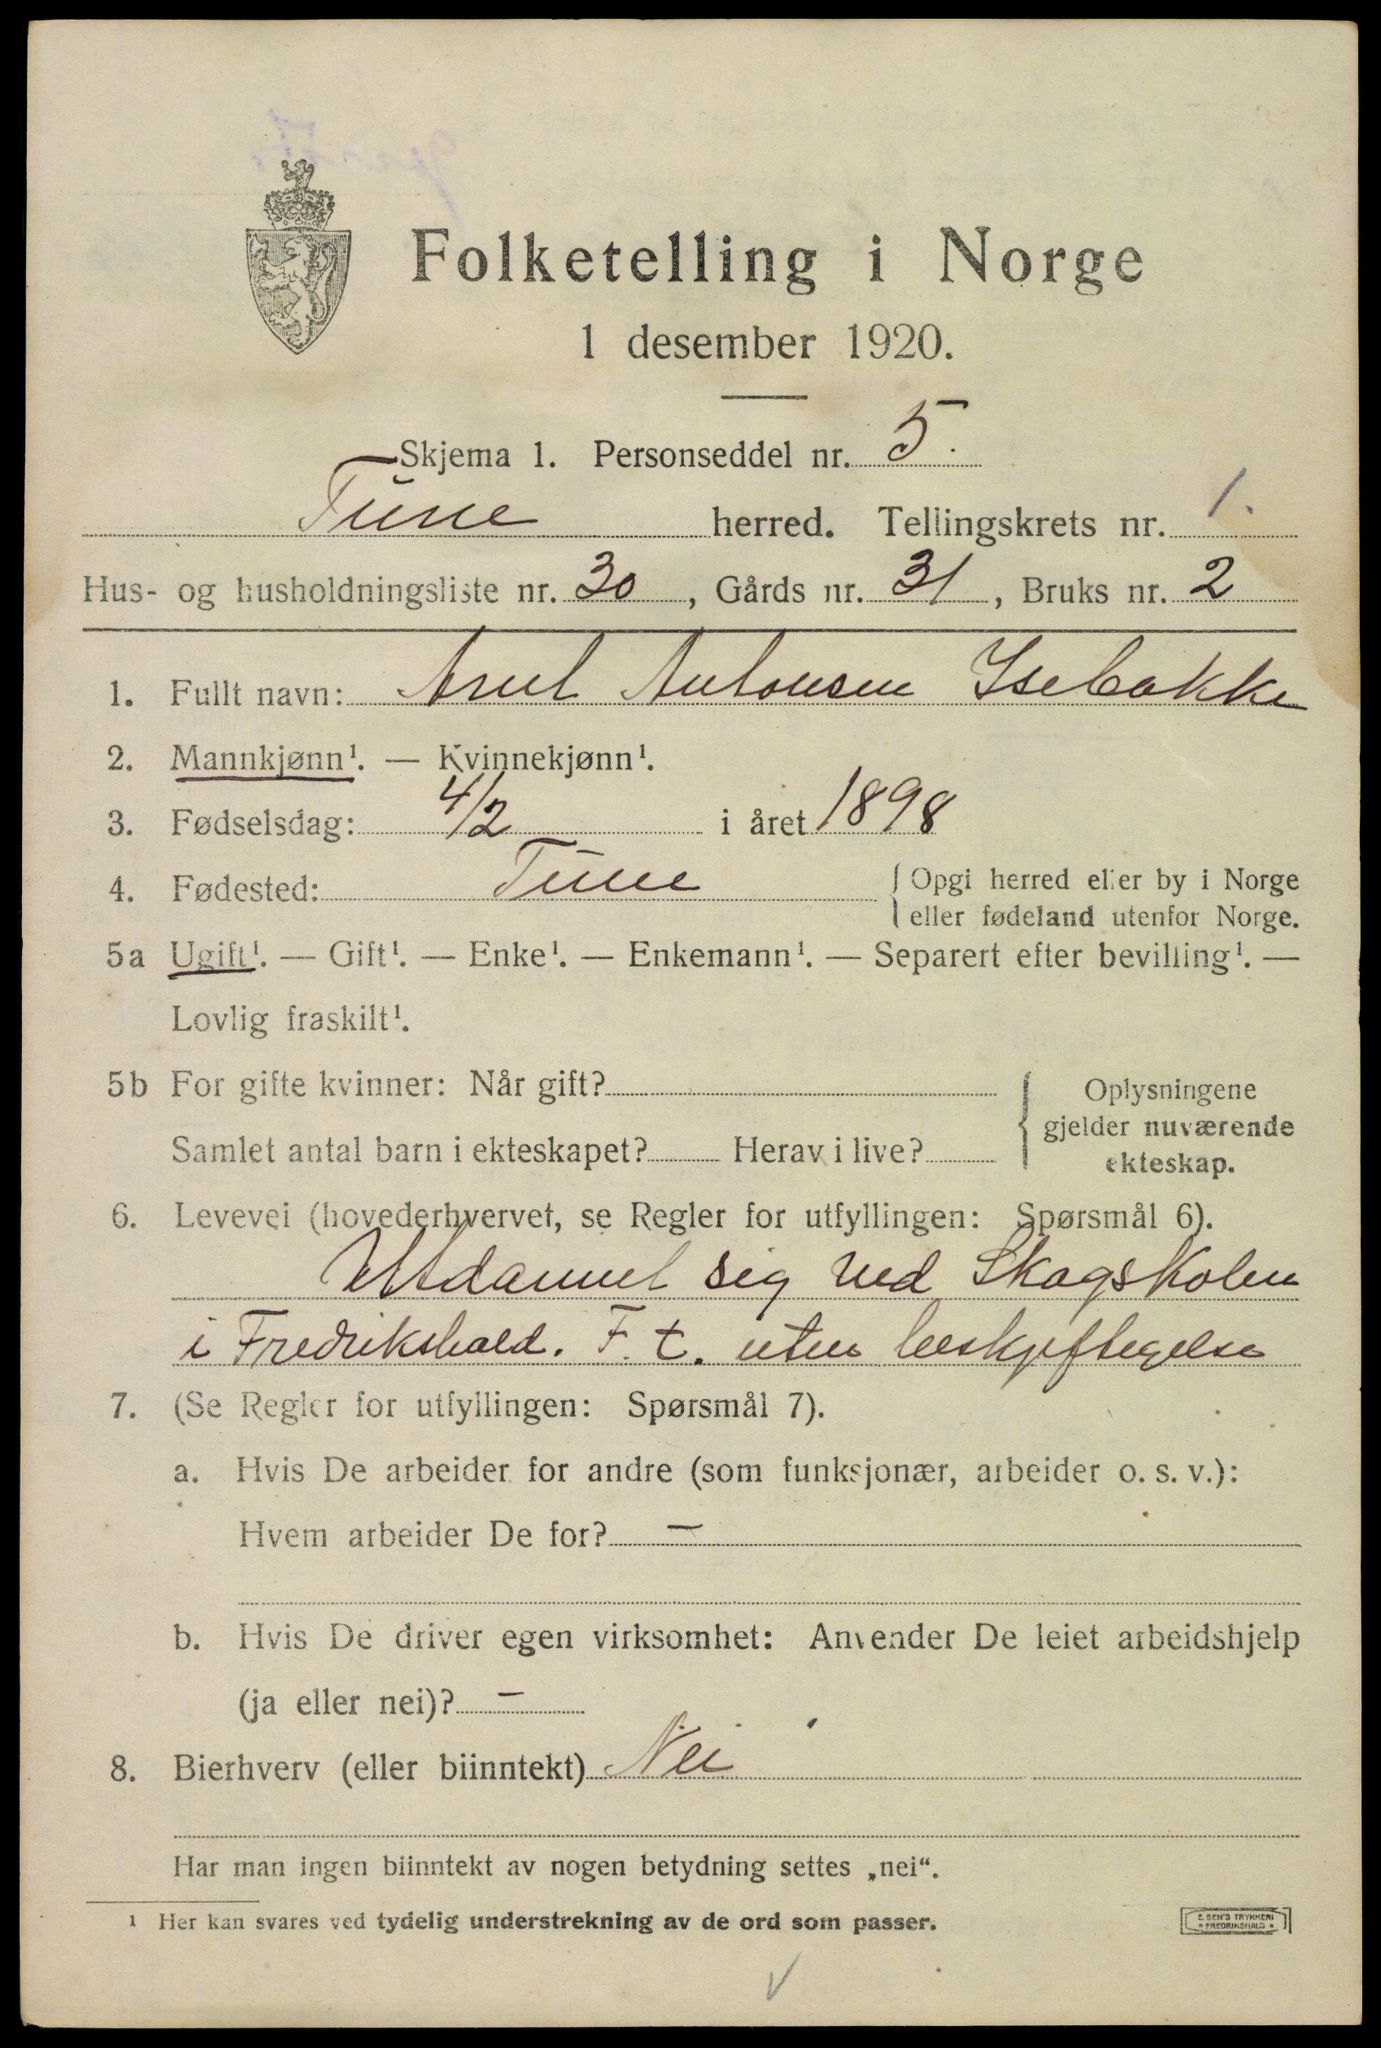 Folketelling i Norge
1 desember 1920.
Skjema 1. Personseddel nr. 5.
Tune herred. Tellingskrets nr. 1.
Hus- og husholdningsliste nr. 30, Gårds nr. 31, Bruks nr. 2
1. Fullt navn: Arnt Antonsen Isebakke
2. Mannkjønn¹. — Kvinnekjønn¹.
3. Fødselsdag: 4/2 i året 1898
4. Fødested: Tune { Opgi herred eller by i Norge
eller fødeland utenfor Norge.
5a Ugift¹. — Gift¹. — Enke¹. — Enkemann¹. — Separert efter bevilling¹. —
Lovlig fraskilt¹.
5b For gifte kvinner: Når gift?
Samlet antal barn i ekteskapet? Herav i live?
Oplysningene
gjelder nuværende
ekteskap.
6. Levevei (hovederhvervet, se Regler for utfyllingen: Spørsmål 6).
Utdannet sig ved Skogskolen
i Fredrikshald. F. t. uten beskjeftegelse
7. (Se Regler for utfyllingen: Spørsmål 7).
a. Hvis De arbeider for andre (som funksjonær, arbeider o. s. v.):
Hvem arbeider De for? —
b. Hvis De driver egen virksomhet: Anvender De leiet arbeidshjelp
(ja eller nei)? —
8. Bierhverv (eller biinntekt) Nei
Har man ingen biinntekt av nogen betydning settes „nei“.
¹ Her kan svares ved tydelig understrekning av de ord som passer.
E. SEM'S TRYKKERI
* FREDRIKSHALD *